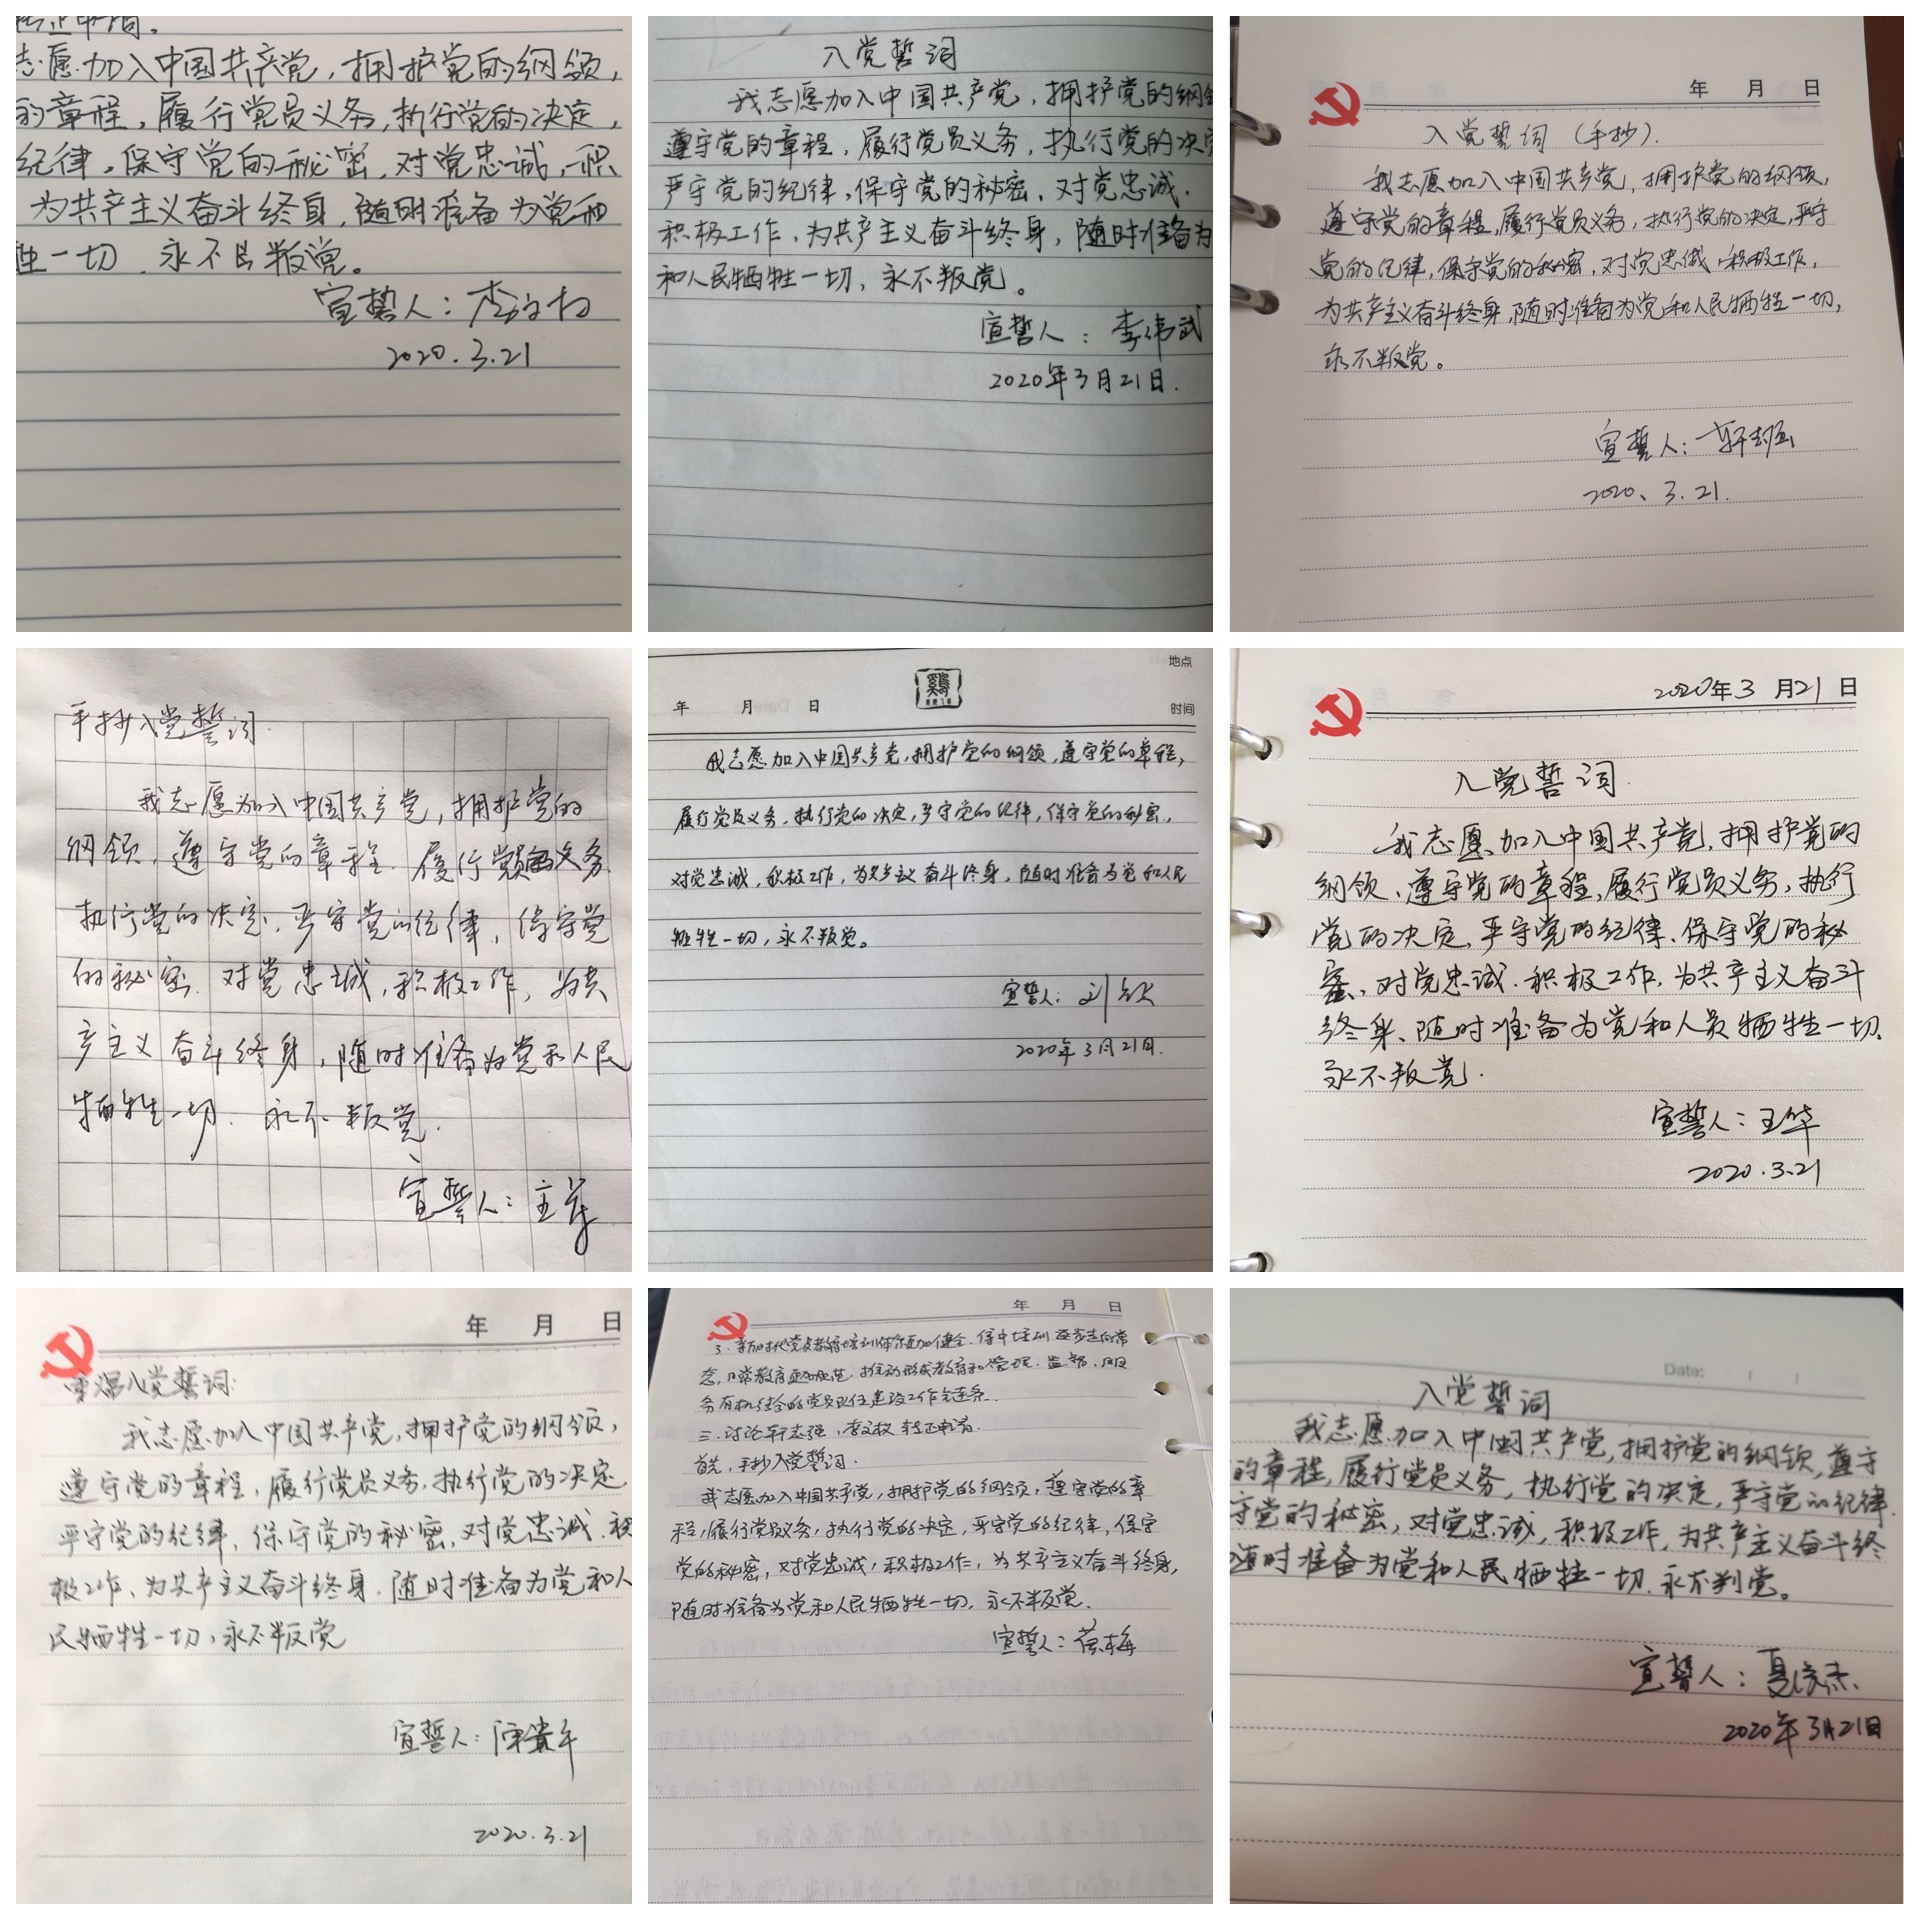 志愿加入中国共产党，拥护党的纲领，
的章程，履行党员义务，执行党的决定，
纪律，保守党的秘密，对党忠诚，积
为共产主义奋斗终身，随时准备为党和
牲一切，永不叛党。
宣誓人：李文权
2020.3.21
入党誓词
我志愿加入中国共产党，拥护党的纲
遵守党的章程，履行党员义务，执行党的决定
严守党的纪律，保守党的秘密，对党忠诚，
积极工作，为共产主义奋斗终身，随时准备为
和人民牺牲一切，永不叛党。
宣誓人：李伟武
2020年3月21日.
年 月 日
入党誓词（手抄）.
我志愿加入中国共产党，拥护党的纲领，
遵守党的章程，履行党员义务，执行党的决定，严守
党的纪律，保守党的秘密，对党忠诚，积极工作，
为共产主义奋斗终身，随时准备为党和人民牺牲一切，
永不叛党。
宣誓人：靳志强
2020、3.21.
手抄入党誓词.
我志愿加入中国共产党，拥护党的
纲领，遵守党的章程，履行党员义务
执行党的决定，严守党的纪律，保守党
的秘密，对党忠诚，积极工作，为共
产主义奋斗终身，随时准备为党和人民
牺牲一切，永不叛党.
宣誓人：
地点
年 月 日
时间
我志愿加入中国共产党，拥护党的纲领，遵守党的章程，
履行党员义务，执行党的决定，严守党的纪律，保守党的秘密，
对党忠诚，积极工作，为共产主义奋斗终身，随时准备为党和人民
牺牲一切，永不叛党。
宣誓人：刘
2020年3月21日.
2020年3月21日
入党誓词.
我志愿加入中国共产党，拥护党的
纲领、遵守党的章程，履行党员义务，执行
党的决定，严守党的纪律、保守党的秘
密，对党忠诚．积极工作，为共产主义奋斗
终身、随时准备为党和人员牺牲一切，
永不叛党．
宣誓人：王华
2020.3.21
年 月 日
入党誓词：
我志愿加入中国共产党，拥护党的纲领，
遵守党的章程，履行党员义务，执行党的决定
严守党的纪律，保守党的秘密，对党忠诚，积
极工作，为共产主义奋斗终身，随时准备为党和人
民牺牲一切，永不叛党
宣誓人：陈贵军
2020.3.21
年 月 日
3．新时代党员教育培训体系更加健全．集中培训逐步走向常
态，日常教育更加规范．推动形成教育和管理、监督、服
务有机结合的党员队伍建设工作完整链条．
三．讨论靳志强，李文权 转正申请.
首先，手抄入党誓词．
我志愿加入中国共产党，拥护党的纲领，遵守党的章
程，履行党员义务，执行党的决定，严守党的纪律，保守
党的秘密，对党忠诚，积极工作，为共产主义奋斗终身，
随时准备为党和人民牺牲一切，永不叛党．
宣誓人：蔡梅
Date:
入党誓词
我志愿加入中国共产党，拥护党的纲领，遵守
的章程，履行党员义务，执行党的决定，严守党的纪律
守党的秘密，对党忠诚，积极工作，为共产主义奋斗终
随时准备为党和人民牺牲一切，永不判党。
宣誓人：夏俊杰
2020年3月21日